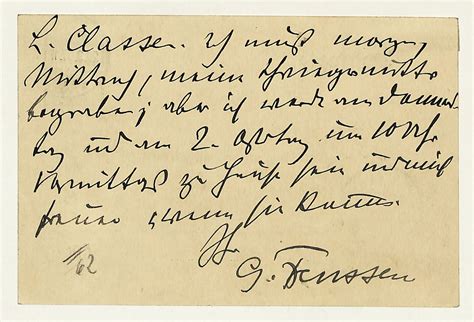 L. Classen. Ich muß morgen,
Mittwoch, meine Schwiegermutter
begraben; aber ich werde am Donners-
tag und am 2. Ostertag um 10 Uhr
Vormittags zu Hause sein und mich
freuen, wenn sie kommen.
Ihr
G. Frenssen
62